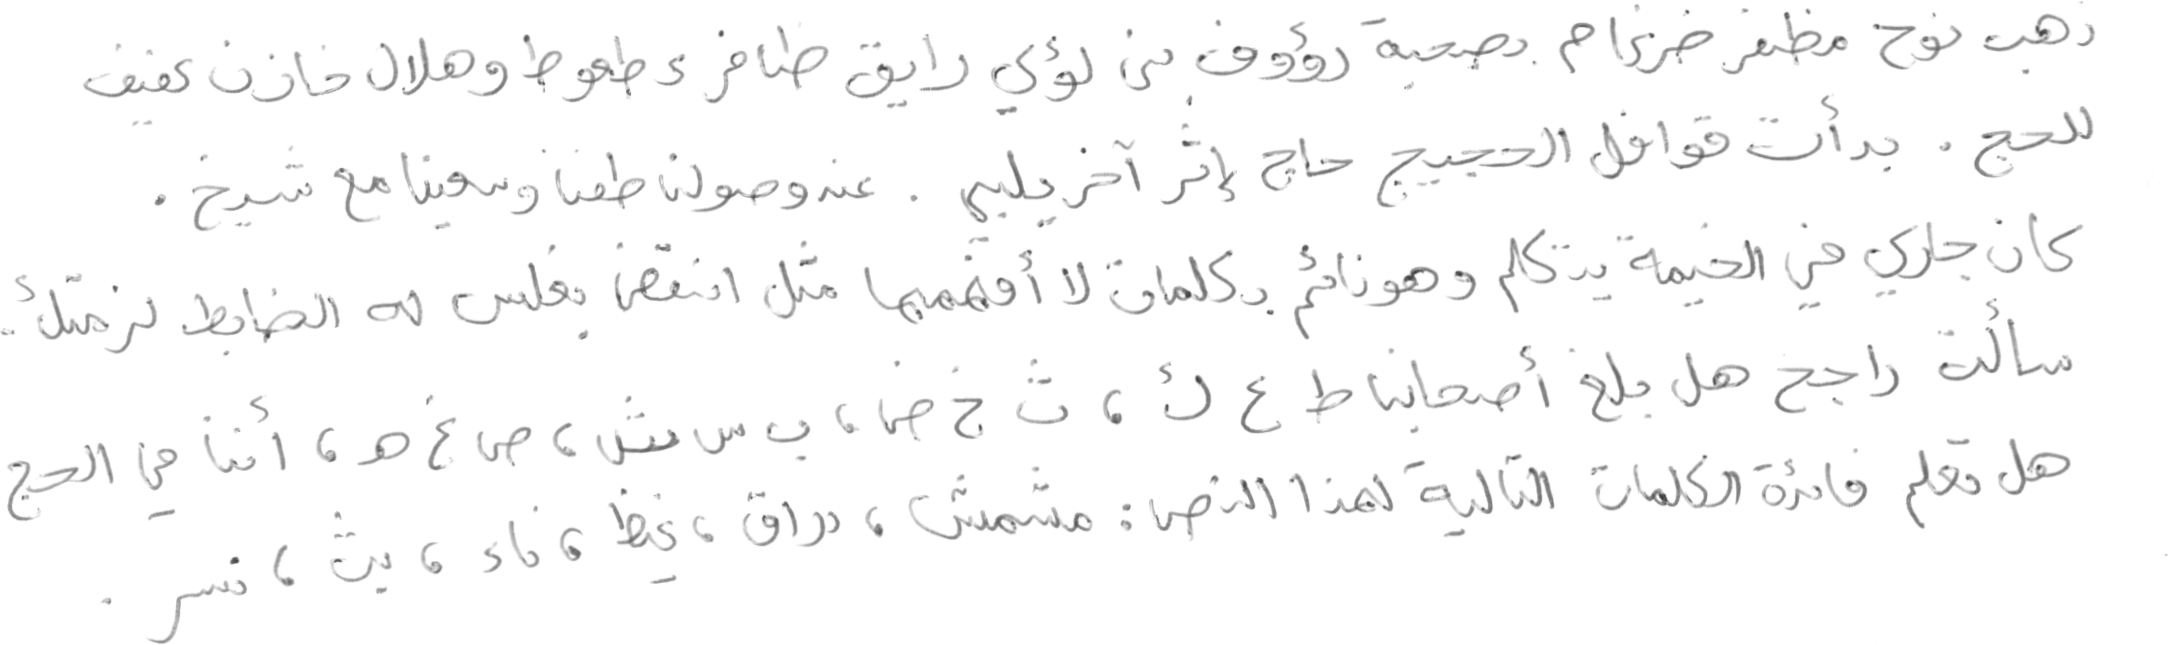 ذهب نوح مظفر ضرغام بصحبة رؤوف بن لؤي رايق ظافر ء طعوط وهلال خازن عفيف
للحج . بدأت قوافل الحجيج حاج إثر آخر يلبي . عند وصولنا طفنا وسعينا مع شيخ .
كان جاري في الخيمة يتكلم وهو نائم بكلمات لا أفهمها مثل انتقض بغلس له الضابط لزمتلأ .
سألت راجح هل بلغ أصحابنا ط ع ك ، ث خ ض ، ب س ش ، ص غ هـ ، أننا في الحج
هل تعلم فائدة الكلمات التالية لهذا النص : مشمش ، دراق ، غيظ ، ناء ، يث ، نسر .